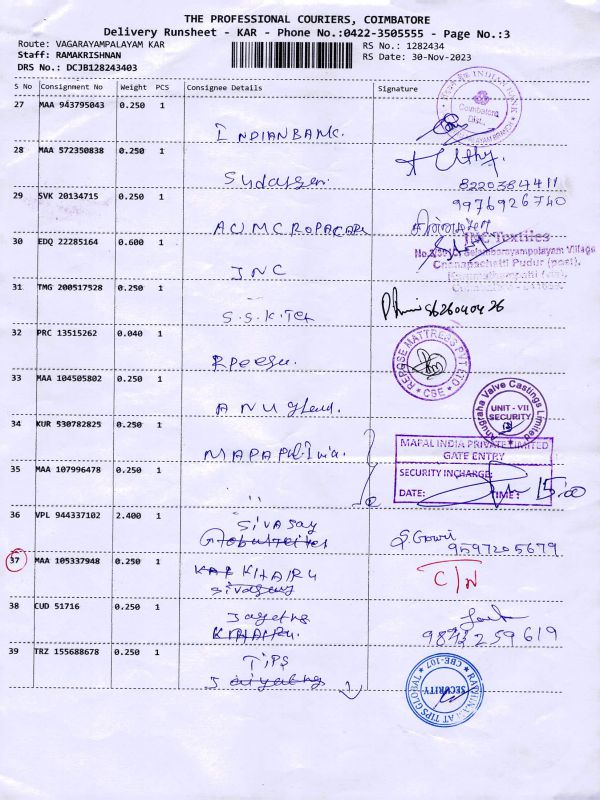 THE PROFESSIONAL COURIERS, COIMBATORE
Delivery Runsheet - KAR - Phone No.:0422-3505555 - Page No.:3
Route: VAGARAYAMPALAYAM KAR
RS No.: 1282434
Staff: RAMAKRISHNAN
RS Date: 30-Nov-2023
DRS No.: DCJB128243403
S No Consignment No Weight PCS Consignee Details Signature
27 MAA 943795043 0.250 1
INDIANBANK.
INDIAN BANK
Coimbatore
Dist.,
28 MAA 572350838 0.250 1
8220384411
29 SVK 20134715 0.250 1
9976926740
30 EDQ 22285164 0.600 1
JNC
JNC Textiles
Village
Pudur (post),
31 TMG 200517528 0.250 1
S.S.K.Tex
9626040426
32 PRC 13515262 0.040 1
REPOSE MATTRESS PVT LTD
CSE
33 MAA 104505802 0.250 1
ANUGlaud.
Anugraha Valve Castings Limited
UNIT - VII
SECURITY
34 KUR 530782825 0.250 1
MAPAL India
MAPAL INDIA PRIVATE LIMITED
GATE ENTRY
35 MAA 107996478 0.250 1
SECURITY INCHARGE:
DATE: TIME: 15:00
"
36 VPL 944337102 2.400 1
Sivasay
S. Gowri
9597205679
37 MAA 105337948 0.250 1
C/N
38 CUD 51716 0.250 1
9843259619
39 TRZ 155688678 0.250 1
TIPS
CBE-107
SECURITY
TIPS GLOBAL